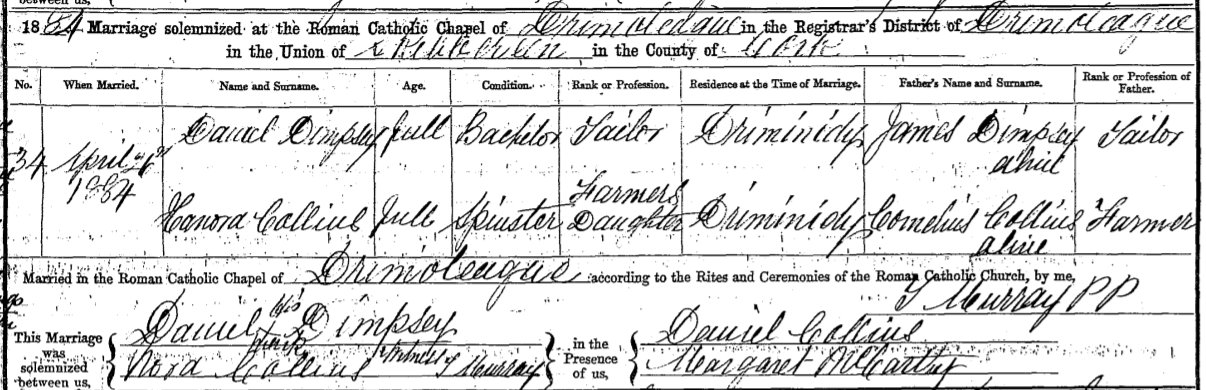 between us,
1884 Marriage solemnized at the Roman Catholic Chapel of Drimoleague in the Registrar's District of Drimoleague
in the Union of Skibbereen in the County of Cork
No. When Married. Name and Surname. Age. Condition. Rank or Profession. Residence at the Time of Marriage. Father's Name and Surname. Rank or Profession of Father.
34 April 26th 1884 Daniel Dimpsey full Bachelor Tailor Driminidy James Dimpsey alive Tailor
Hanora Collins full Spinster Farmers Daughter Driminidy Cornelius Collins alive Farmer
Married in the Roman Catholic Chapel of Drimoleague according to the Rites and Ceremonies of the Roman Catholic Church, by me,
Murray PP
This Marriage was solemnized between us, { Daniel his mark Dimpsey
Nora Collins Witness Murray } in the Presence of us, { Daniel Collins
Margaret McCarthy